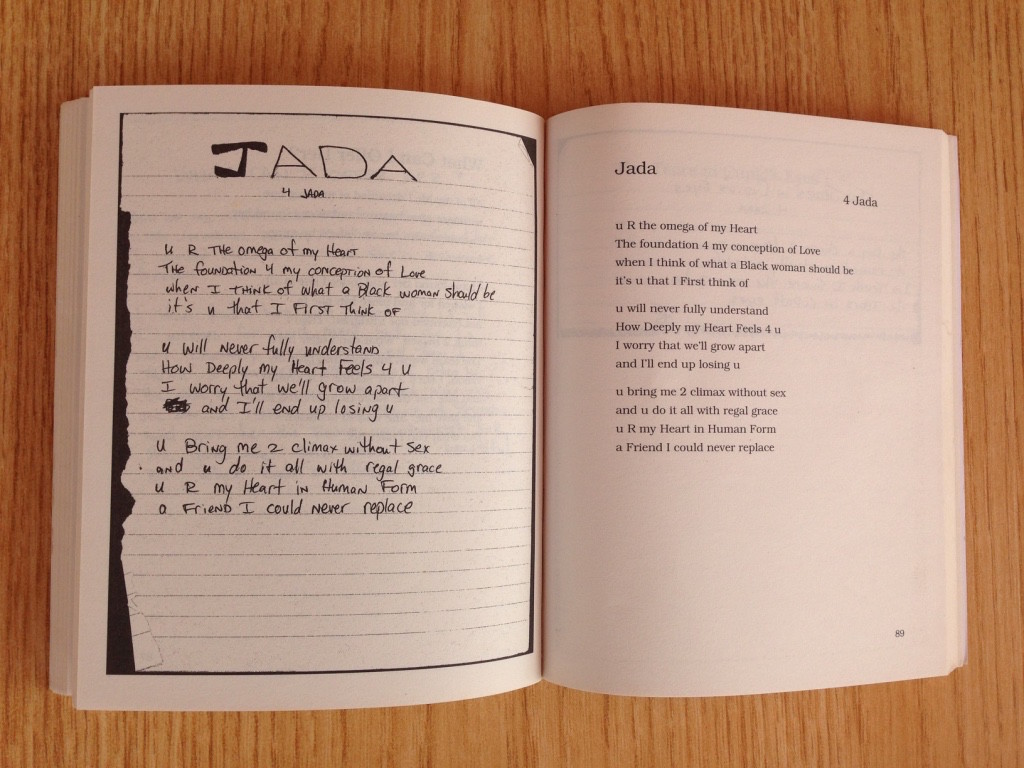 JADA
4 JADA
u R The omega of my Heart
The foundation 4 my conception of Love
when I THINK of what a Black woman should be
it's u that I FIRST THINK OF
u will Never fully understand
How Deeply my Heart Feels 4 U
I worry that we'll grow apart
and I'll end up losing u
u Bring me 2 climax without sex
and u do it all with regal grace
u R my Heart in Human Form
a Friend I could Never replace
Jada
4 Jada
u R the omega of my Heart
The foundation 4 my conception of Love
when I think of what a Black woman should be
it's u that I First think of
u will never fully understand
How Deeply my Heart Feels 4 u
I worry that we'll grow apart
and I'll end up losing u
u bring me 2 climax without sex
and u do it all with regal grace
u R my Heart in Human Form
a Friend I could never replace
89